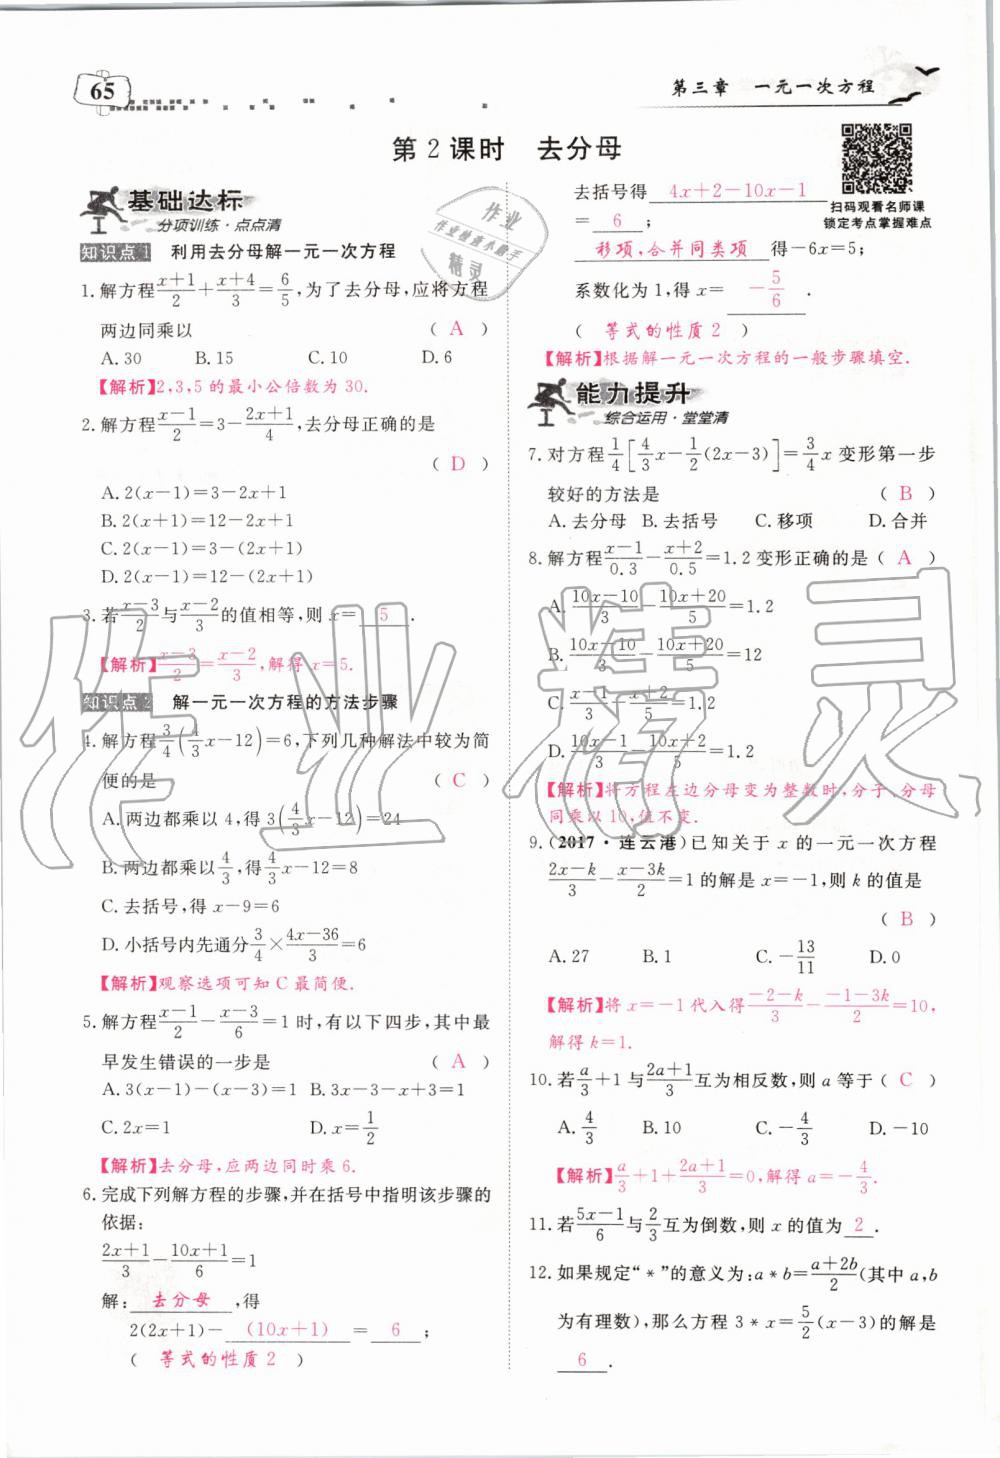 65
第三章 一元一次方程
第2课时 去分母
基础达标
分项训练·点点清
知识点1 利用去分母解一元一次方程
1.解方程\frac{x+1}{2}+\frac{x+4}{3}=\frac{6}{5},为了去分母,应将方程
两边同乘以 ( A )
A.30 B.15 C.10 D.6
【解析】2,3,5的最小公倍数为30.
2.解方程\frac{x-1}{2}=3-\frac{2x+1}{4},去分母正确的是
( D )
A.2(x-1)=3-2x+1
B.2(x+1)=12-2x+1
C.2(x-1)=3-(2x+1)
D.2(x-1)=12-(2x+1)
3.若\frac{x-3}{2}与\frac{x-2}{3}的值相等,则x= 5 .
【解析】\frac{x-3}{2}=\frac{x-2}{3},解得x=5.
知识点2 解一元一次方程的方法步骤
4.解方程\frac{3}{4}(\frac{4}{3}x-12)=6,下列几种解法中较为简
便的是 ( C )
A.两边都乘以4,得3(\frac{4}{3}x-12)=24
B.两边都乘以\frac{4}{3},得\frac{4}{3}x-12=8
C.去括号,得x-9=6
D.小括号内先通分\frac{3}{4}×\frac{4x-36}{3}=6
【解析】观察选项可知C最简便.
5.解方程\frac{x-1}{2}-\frac{x-3}{6}=1时,有以下四步,其中最
早发生错误的一步是 ( A )
A.3(x-1)-(x-3)=1 B.3x-3-x+3=1
C.2x=1 D.x=\frac{1}{2}
【解析】去分母,应两边同时乘6.
6.完成下列解方程的步骤,并在括号中指明该步骤的
依据:
\frac{2x+1}{3}-\frac{10x+1}{6}=1
解: 去分母 ,得
2(2x+1)- (10x+1) = 6 ;
( 等式的性质2 )
去括号得 4x+2-10x-1
= 6 ;
移项,合并同类项 得-6x=5;
系数化为1,得x= -\frac{5}{6} .
( 等式的性质2 )
【解析】根据解一元一次方程的一般步骤填空.
扫码观看名师课
锁定考点掌握难点
能力提升
综合运用·堂堂清
7.对方程\frac{1}{4}[\frac{4}{3}x-\frac{1}{2}(2x-3)]=\frac{3}{4}x变形第一步
较好的方法是 ( B )
A.去分母 B.去括号 C.移项 D.合并
8.解方程\frac{x-1}{0.3}-\frac{x+2}{0.5}=1.2变形正确的是( A )
A.\frac{10x-10}{3}-\frac{10x+20}{5}=1.2
B.\frac{10x-10}{3}-\frac{10x+20}{5}=12
C.\frac{x-1}{3}-\frac{x+2}{5}=1.2
D.\frac{10x-1}{3}-\frac{10x+2}{5}=1.2
【解析】将方程左边分母变为整数时,分子、分母
同乘以10,值不变.
9.(2017·连云港)已知关于x的一元一次方程
\frac{2x-k}{3}-\frac{x-3k}{2}=1的解是x=-1,则k的值是
( B )
A.27 B.1 C.-\frac{13}{11} D.0
【解析】将x=-1代入得\frac{-2-k}{3}-\frac{-1-3k}{2}=10,
解得k=1.
10.若\frac{a}{3}+1与\frac{2a+1}{3}互为相反数,则a等于( C )
A.\frac{4}{3} B.10 C.-\frac{4}{3} D.-10
【解析】\frac{a}{3}+1+\frac{2a+1}{3}=0,解得a=-\frac{4}{3}.
11.若\frac{5x-1}{6}与\frac{2}{3}互为倒数,则x的值为 2 .
12.如果规定“*”的意义为:a*b=\frac{a+2b}{2}(其中a,b
为有理数),那么方程3*x=\frac{5}{2}(x-3)的解是
6 .
作业
作业检查小助手
精灵
作业精灵